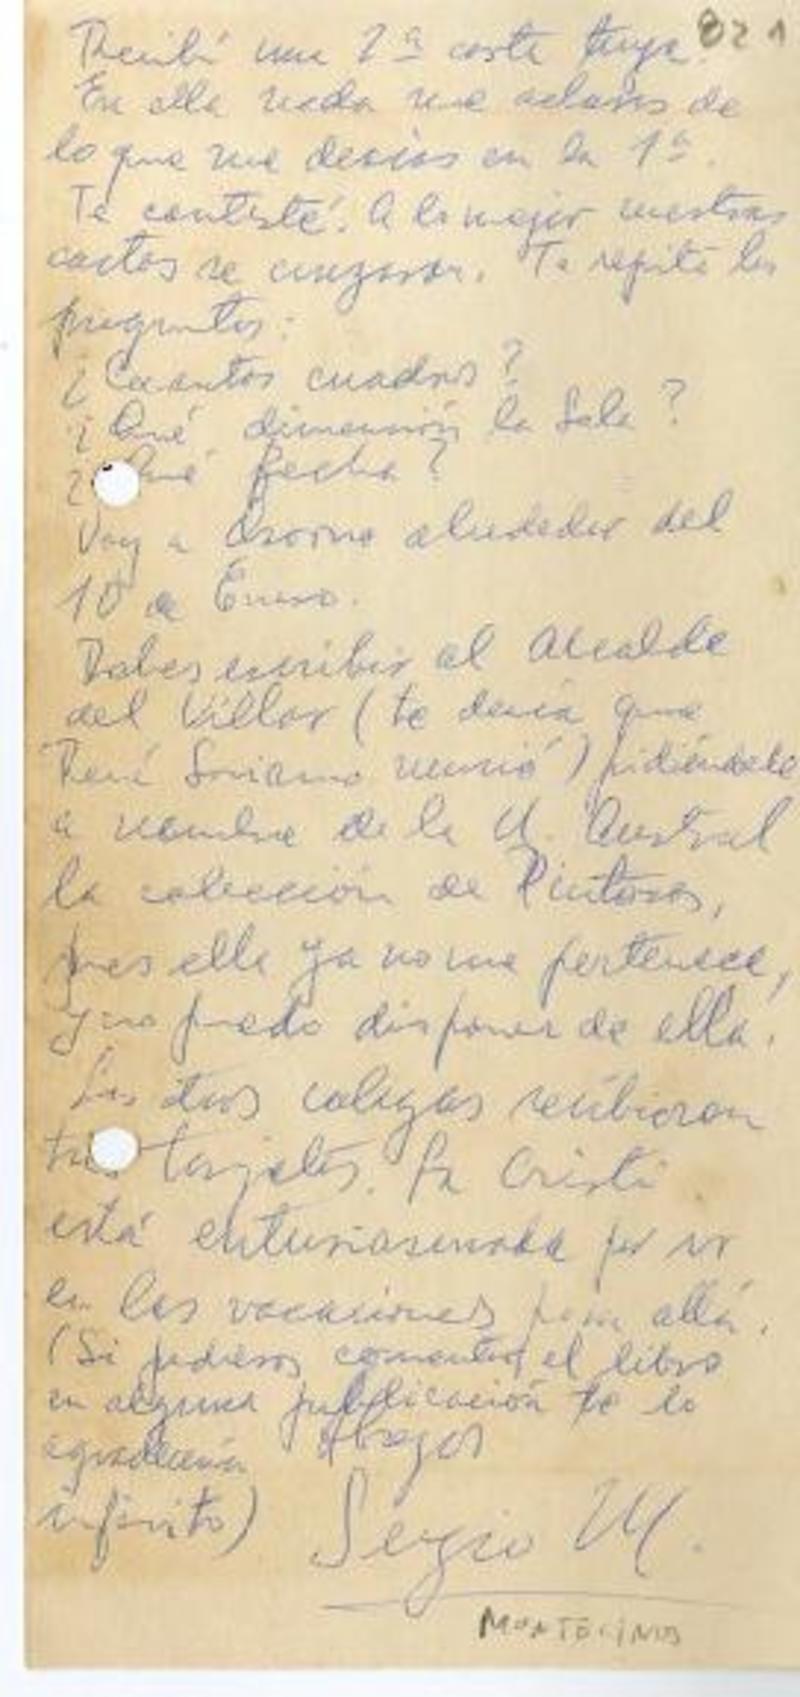 821
Recibí una 2ª carta tuya.
En ella nada me aclaras de
lo que me decías en la 1ª.
Te contesté. A lo mejor nuestras
cartas se cruzaron. Te repito las
preguntas:
¿Cuántos cuadros?
¿Qué dimensión la Sala?
¿Qué fecha?
Voy a Osorno alrededor del
10 de Enero.
Debes escribir al Alcalde
del Villar (te decía que
René Soriano murió) pidiéndole
a nombre de la U. Austral
la colección de Pintores,
pues ella ya no me pertenece,
y no puedo disponer de ella.
Los otros colegas recibieron
tus tarjetas. La Cristi
está entusiasmada por ir
en las vacaciones para allá.
(Si pudieras comentar el libro
en alguna publicación te lo
agradecería Abrazos
infinito) Sergio M.
MONTECINOS